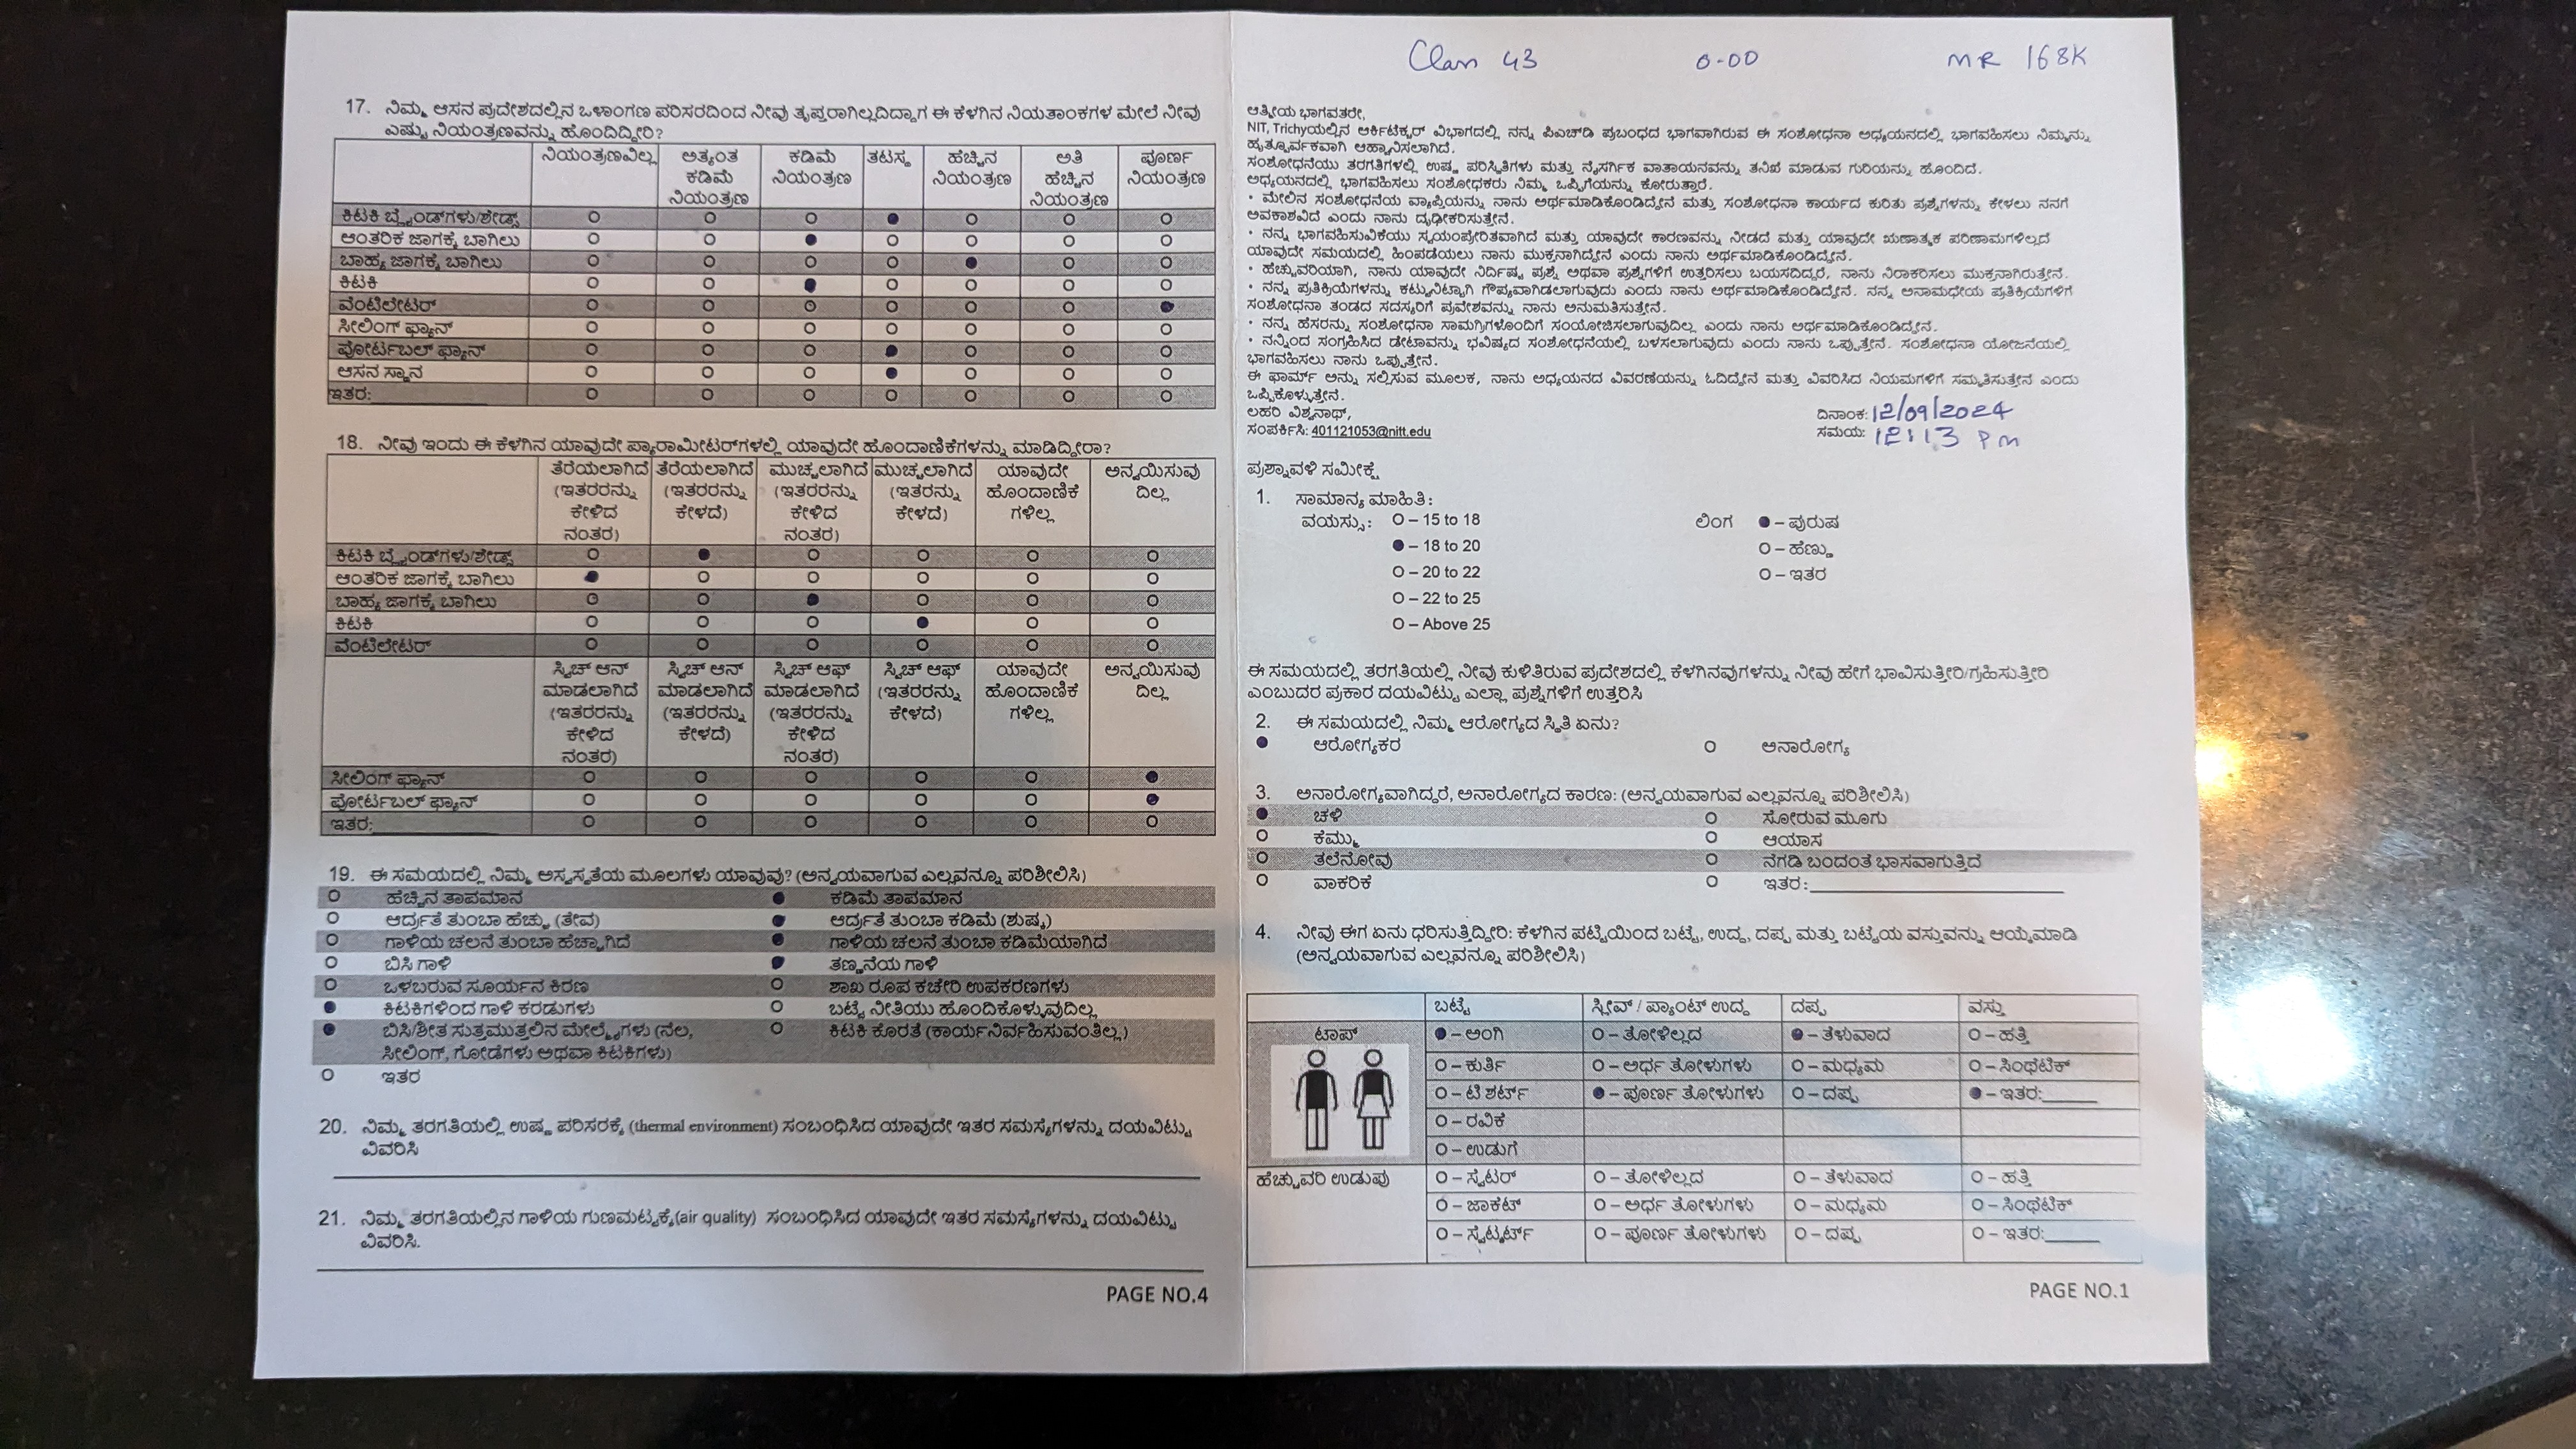 17. ನಿಮ್ಮ ಆಸನ ಪ್ರದೇಶದಲ್ಲಿನ ಒಳಾಂಗಣ ಪರಿಸರದಿಂದ ನೀವು ತೃಪ್ತರಾಗಿಲ್ಲದಿದ್ದಾಗ ಈ ಕೆಳಗಿನ ನಿಯತಾಂಕಗಳ ಮೇಲೆ ನೀವು
ಎಷ್ಟು ನಿಯಂತ್ರಣವನ್ನು ಹೊಂದಿದ್ದೀರಿ?
ನಿಯಂತ್ರಣವಿಲ್ಲ ಅತ್ಯಂತ ಕಡಿಮೆ ತಟಸ್ಥ ಹೆಚ್ಚಿನ ಅತಿ ಪೂರ್ಣ
ಕಡಿಮೆ ನಿಯಂತ್ರಣ ನಿಯಂತ್ರಣ ಹೆಚ್ಚಿನ ನಿಯಂತ್ರಣ
ನಿಯಂತ್ರಣ ನಿಯಂತ್ರಣ
ಕಿಟಕಿ ಬ್ಲೈಂಡ್‌ಗಳು/ಶೇಡ್ಸ್
ಆಂತರಿಕ ಜಾಗಕ್ಕೆ ಬಾಗಿಲು
ಬಾಹ್ಯ ಜಾಗಕ್ಕೆ ಬಾಗಿಲು
ಕಿಟಕಿ
ವೆಂಟಿಲೇಟರ್
ಸೀಲಿಂಗ್ ಫ್ಯಾನ್
ಪೋರ್ಟಬಲ್ ಫ್ಯಾನ್
ಆಸನ ಸ್ಥಾನ
ಇತರ:
18. ನೀವು ಇಂದು ಈ ಕೆಳಗಿನ ಯಾವುದೇ ಪ್ಯಾರಾಮೀಟರ್‌ಗಳಲ್ಲಿ ಯಾವುದೇ ಹೊಂದಾಣಿಕೆಗಳನ್ನು ಮಾಡಿದ್ದೀರಾ?
ತೆರೆಯಲಾಗಿದೆ ತೆರೆಯಲಾಗಿದೆ ಮುಚ್ಚಲಾಗಿದೆ ಮುಚ್ಚಲಾಗಿದೆ ಯಾವುದೇ ಅನ್ವಯಿಸುವು
(ಇತರರನ್ನು (ಇತರರನ್ನು (ಇತರರನ್ನು (ಇತರನ್ನು ಹೊಂದಾಣಿಕೆ ದಿಲ್ಲ
ಕೇಳಿದ ಕೇಳದೆ) ಕೇಳಿದ ಕೇಳದೆ) ಗಳಿಲ್ಲ
ನಂತರ) ನಂತರ)
ಕಿಟಕಿ ಬ್ಲೈಂಡ್‌ಗಳು/ಶೇಡ್ಸ್
ಆಂತರಿಕ ಜಾಗಕ್ಕೆ ಬಾಗಿಲು
ಬಾಹ್ಯ ಜಾಗಕ್ಕೆ ಬಾಗಿಲು
ಕಿಟಕಿ
ವೆಂಟಿಲೇಟರ್
ಸ್ವಿಚ್ ಆನ್ ಸ್ವಿಚ್ ಆನ್ ಸ್ವಿಚ್ ಆಫ್ ಸ್ವಿಚ್ ಆಫ್ ಯಾವುದೇ ಅನ್ವಯಿಸುವು
ಮಾಡಲಾಗಿದೆ ಮಾಡಲಾಗಿದೆ ಮಾಡಲಾಗಿದೆ (ಇತರರನ್ನು ಹೊಂದಾಣಿಕೆ ದಿಲ್ಲ
(ಇತರರನ್ನು (ಇತರರನ್ನು (ಇತರರನ್ನು ಕೇಳದೆ) ಗಳಿಲ್ಲ
ಕೇಳಿದ ಕೇಳದೆ) ಕೇಳಿದ
ನಂತರ) ನಂತರ)
ಸೀಲಿಂಗ್ ಫ್ಯಾನ್
ಪೋರ್ಟಬಲ್ ಫ್ಯಾನ್
ಇತರ:
19. ಈ ಸಮಯದಲ್ಲಿ ನಿಮ್ಮ ಅಸ್ವಸ್ಥತೆಯ ಮೂಲಗಳು ಯಾವುವು? (ಅನ್ವಯವಾಗುವ ಎಲ್ಲವನ್ನೂ ಪರಿಶೀಲಿಸಿ)
ಹೆಚ್ಚಿನ ತಾಪಮಾನ ಕಡಿಮೆ ತಾಪಮಾನ
ಆರ್ದ್ರತೆ ತುಂಬಾ ಹೆಚ್ಚು (ತೇವ) ಆರ್ದ್ರತೆ ತುಂಬಾ ಕಡಿಮೆ (ಶುಷ್ಕ)
ಗಾಳಿಯ ಚಲನೆ ತುಂಬಾ ಹೆಚ್ಚಾಗಿದೆ ಗಾಳಿಯ ಚಲನೆ ತುಂಬಾ ಕಡಿಮೆಯಾಗಿದೆ
ಬಿಸಿ ಗಾಳಿ ತಣ್ಣನೆಯ ಗಾಳಿ
ಒಳಬರುವ ಸೂರ್ಯನ ಕಿರಣ ಶಾಖ ರೂಪ ಕಚೇರಿ ಉಪಕರಣಗಳು
ಕಿಟಕಿಗಳಿಂದ ಗಾಳಿ ಕರಡುಗಳು ಬಟ್ಟೆ ನೀತಿಯು ಹೊಂದಿಕೊಳ್ಳುವುದಿಲ್ಲ
ಬಿಸಿ/ಶೀತ ಸುತ್ತಮುತ್ತಲಿನ ಮೇಲ್ಮೈಗಳು (ನೆಲ, ಕಿಟಕಿ ಕೊರತೆ (ಕಾರ್ಯನಿರ್ವಹಿಸುವಂತಿಲ್ಲ)
ಸೀಲಿಂಗ್, ಗೋಡೆಗಳು ಅಥವಾ ಕಿಟಕಿಗಳು)
ಇತರ
20. ನಿಮ್ಮ ತರಗತಿಯಲ್ಲಿ ಉಷ್ಣ ಪರಿಸರಕ್ಕೆ (thermal environment) ಸಂಬಂಧಿಸಿದ ಯಾವುದೇ ಇತರ ಸಮಸ್ಯೆಗಳನ್ನು ದಯವಿಟ್ಟು
ವಿವರಿಸಿ
21. ನಿಮ್ಮ ತರಗತಿಯಲ್ಲಿನ ಗಾಳಿಯ ಗುಣಮಟ್ಟಕ್ಕೆ(air quality) ಸಂಬಂಧಿಸಿದ ಯಾವುದೇ ಇತರ ಸಮಸ್ಯೆಗಳನ್ನು ದಯವಿಟ್ಟು
ವಿವರಿಸಿ.
PAGE NO.4
Class 43 0-00 MR 168K
ಆತ್ಮೀಯ ಭಾಗವತರೇ,
NIT, Trichyಯಲ್ಲಿನ ಆರ್ಕಿಟೆಕ್ಚರ್ ವಿಭಾಗದಲ್ಲಿ ನನ್ನ ಪಿಎಚ್‌ಡಿ ಪ್ರಬಂಧದ ಭಾಗವಾಗಿರುವ ಈ ಸಂಶೋಧನಾ ಅಧ್ಯಯನದಲ್ಲಿ ಭಾಗವಹಿಸಲು ನಿಮ್ಮನ್ನು
ಹೃತ್ಪೂರ್ವಕವಾಗಿ ಆಹ್ವಾನಿಸಲಾಗಿದೆ.
ಸಂಶೋಧನೆಯು ತರಗತಿಗಳಲ್ಲಿ ಉಷ್ಣ ಪರಿಸ್ಥಿತಿಗಳು ಮತ್ತು ನೈಸರ್ಗಿಕ ವಾತಾಯನವನ್ನು ತನಿಖೆ ಮಾಡುವ ಗುರಿಯನ್ನು ಹೊಂದಿದೆ.
ಅಧ್ಯಯನದಲ್ಲಿ ಭಾಗವಹಿಸಲು ಸಂಶೋಧಕರು ನಿಮ್ಮ ಒಪ್ಪಿಗೆಯನ್ನು ಕೋರುತ್ತಾರೆ.
• ಮೇಲಿನ ಸಂಶೋಧನೆಯ ವ್ಯಾಪ್ತಿಯನ್ನು ನಾನು ಅರ್ಥಮಾಡಿಕೊಂಡಿದ್ದೇನೆ ಮತ್ತು ಸಂಶೋಧನಾ ಕಾರ್ಯದ ಕುರಿತು ಪ್ರಶ್ನೆಗಳನ್ನು ಕೇಳಲು ನನಗೆ
ಅವಕಾಶವಿದೆ ಎಂದು ನಾನು ದೃಢೀಕರಿಸುತ್ತೇನೆ.
• ನನ್ನ ಭಾಗವಹಿಸುವಿಕೆಯು ಸ್ವಯಂಪ್ರೇರಿತವಾಗಿದೆ ಮತ್ತು ಯಾವುದೇ ಕಾರಣವನ್ನು ನೀಡದೆ ಮತ್ತು ಯಾವುದೇ ಋಣಾತ್ಮಕ ಪರಿಣಾಮಗಳಿಲ್ಲದೆ
ಯಾವುದೇ ಸಮಯದಲ್ಲಿ ಹಿಂಪಡೆಯಲು ನಾನು ಮುಕ್ತನಾಗಿದ್ದೇನೆ ಎಂದು ನಾನು ಅರ್ಥಮಾಡಿಕೊಂಡಿದ್ದೇನೆ.
• ಹೆಚ್ಚುವರಿಯಾಗಿ, ನಾನು ಯಾವುದೇ ನಿರ್ದಿಷ್ಟ ಪ್ರಶ್ನೆ ಅಥವಾ ಪ್ರಶ್ನೆಗಳಿಗೆ ಉತ್ತರಿಸಲು ಬಯಸದಿದ್ದರೆ, ನಾನು ನಿರಾಕರಿಸಲು ಮುಕ್ತನಾಗಿರುತ್ತೇನೆ.
• ನನ್ನ ಪ್ರತಿಕ್ರಿಯೆಗಳನ್ನು ಕಟ್ಟುನಿಟ್ಟಾಗಿ ಗೌಪ್ಯವಾಗಿಡಲಾಗುವುದು ಎಂದು ನಾನು ಅರ್ಥಮಾಡಿಕೊಂಡಿದ್ದೇನೆ. ನನ್ನ ಅನಾಮಧೇಯ ಪ್ರತಿಕ್ರಿಯೆಗಳಿಗೆ
ಸಂಶೋಧನಾ ತಂಡದ ಸದಸ್ಯರಿಗೆ ಪ್ರವೇಶವನ್ನು ನಾನು ಅನುಮತಿಸುತ್ತೇನೆ.
• ನನ್ನ ಹೆಸರನ್ನು ಸಂಶೋಧನಾ ಸಾಮಗ್ರಿಗಳೊಂದಿಗೆ ಸಂಯೋಜಿಸಲಾಗುವುದಿಲ್ಲ ಎಂದು ನಾನು ಅರ್ಥಮಾಡಿಕೊಂಡಿದ್ದೇನೆ.
• ನನ್ನಿಂದ ಸಂಗ್ರಹಿಸಿದ ಡೇಟಾವನ್ನು ಭವಿಷ್ಯದ ಸಂಶೋಧನೆಯಲ್ಲಿ ಬಳಸಲಾಗುವುದು ಎಂದು ನಾನು ಒಪ್ಪುತ್ತೇನೆ. ಸಂಶೋಧನಾ ಯೋಜನೆಯಲ್ಲಿ
ಭಾಗವಹಿಸಲು ನಾನು ಒಪ್ಪುತ್ತೇನೆ.
ಈ ಫಾರ್ಮ್ ಅನ್ನು ಸಲ್ಲಿಸುವ ಮೂಲಕ, ನಾನು ಅಧ್ಯಯನದ ವಿವರಣೆಯನ್ನು ಓದಿದ್ದೇನೆ ಮತ್ತು ವಿವರಿಸಿದ ನಿಯಮಗಳಿಗೆ ಸಮ್ಮತಿಸುತ್ತೇನೆ ಎಂದು
ಒಪ್ಪಿಕೊಳ್ಳುತ್ತೇನೆ.
ಲಹರಿ ವಿಶ್ವನಾಥ್, ದಿನಾಂಕ: 12/09/2024
ಸಂಪರ್ಕಿಸಿ: 401121053@nitt.edu ಸಮಯ: 12:13 PM
ಪ್ರಶ್ನಾವಳಿ ಸಮೀಕ್ಷೆ
1. ಸಾಮಾನ್ಯ ಮಾಹಿತಿ:
ವಯಸ್ಸು: O – 15 to 18 ಲಿಂಗ ● – ಪುರುಷ
● – 18 to 20 O – ಹೆಣ್ಣು
O – 20 to 22 O – ಇತರ
O – 22 to 25
O – Above 25
ಈ ಸಮಯದಲ್ಲಿ ತರಗತಿಯಲ್ಲಿ ನೀವು ಕುಳಿತಿರುವ ಪ್ರದೇಶದಲ್ಲಿ ಕೆಳಗಿನವುಗಳನ್ನು ನೀವು ಹೇಗೆ ಭಾವಿಸುತ್ತೀರಿ/ಗ್ರಹಿಸುತ್ತೀರಿ
ಎಂಬುದರ ಪ್ರಕಾರ ದಯವಿಟ್ಟು ಎಲ್ಲಾ ಪ್ರಶ್ನೆಗಳಿಗೆ ಉತ್ತರಿಸಿ
2. ಈ ಸಮಯದಲ್ಲಿ ನಿಮ್ಮ ಆರೋಗ್ಯದ ಸ್ಥಿತಿ ಏನು?
ಆರೋಗ್ಯಕರ ಅನಾರೋಗ್ಯ
3. ಅನಾರೋಗ್ಯವಾಗಿದ್ದರೆ, ಅನಾರೋಗ್ಯದ ಕಾರಣ: (ಅನ್ವಯವಾಗುವ ಎಲ್ಲವನ್ನೂ ಪರಿಶೀಲಿಸಿ)
ಚಳಿ ಸೋರುವ ಮೂಗು
ಕೆಮ್ಮು ಆಯಾಸ
ತಲೆನೋವು ನೆಗಡಿ ಬಂದಂತೆ ಭಾಸವಾಗುತ್ತಿದೆ
ವಾಕರಿಕೆ ಇತರ:
4. ನೀವು ಈಗ ಏನು ಧರಿಸುತ್ತಿದ್ದೀರಿ: ಕೆಳಗಿನ ಪಟ್ಟಿಯಿಂದ ಬಟ್ಟೆ, ಉದ್ದ, ದಪ್ಪ ಮತ್ತು ಬಟ್ಟೆಯ ವಸ್ತುವನ್ನು ಆಯ್ಕೆಮಾಡಿ
(ಅನ್ವಯವಾಗುವ ಎಲ್ಲವನ್ನೂ ಪರಿಶೀಲಿಸಿ)
ಬಟ್ಟೆ ಸ್ಲೀವ್ / ಪ್ಯಾಂಟ್ ಉದ್ದ ದಪ್ಪ ವಸ್ತು
ಟಾಪ್ ● – ಅಂಗಿ O – ತೋಳಿಲ್ಲದ ● – ತೆಳುವಾದ O – ಹತ್ತಿ
O – ಕುರ್ತಿ O – ಅರ್ಧ ತೋಳುಗಳು O – ಮಧ್ಯಮ O – ಸಿಂಥೆಟಿಕ್
O – ಟಿ ಶರ್ಟ್ ● – ಪೂರ್ಣ ತೋಳುಗಳು O – ದಪ್ಪ ● – ಇತರ:
O – ರವಿಕೆ
O – ಉಡುಗೆ
ಹೆಚ್ಚುವರಿ ಉಡುಪು O – ಸ್ವೆಟರ್ O – ತೋಳಿಲ್ಲದ O – ತೆಳುವಾದ O – ಹತ್ತಿ
O – ಜಾಕೆಟ್ O – ಅರ್ಧ ತೋಳುಗಳು O – ಮಧ್ಯಮ O – ಸಿಂಥೆಟಿಕ್
O – ಸ್ವೆಟ್ಶರ್ಟ್ O – ಪೂರ್ಣ ತೋಳುಗಳು O – ದಪ್ಪ O – ಇತರ:
PAGE NO.1